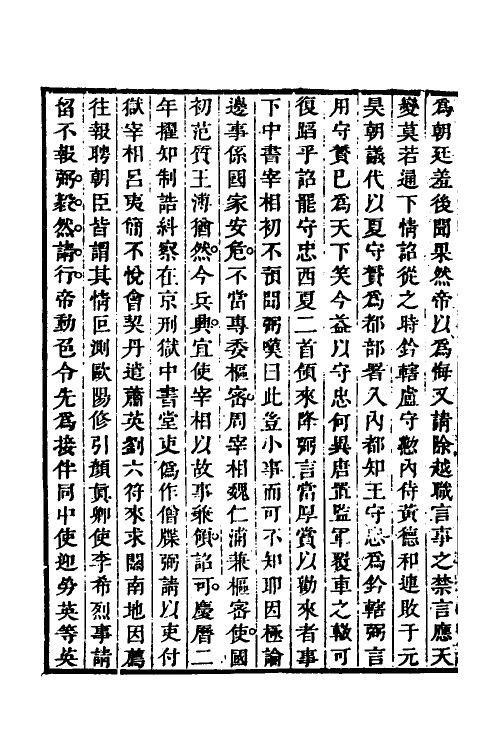 為朝廷羞後聞果然帝以為悔又請除越職言事之禁言應天
變莫若通下情詔從之時鈐轄盧守懃內侍黃德和連敗于元
昊朝議代以夏守贇為都部署入內都知王守忠為鈐轄弼言
用守贇已為天下笑今益以守忠何異唐置監軍覆車之轍可
復蹈乎詔罷守忠西夏二首領來降弼言當厚賞以勸來者事
下中書宰相初不預聞弼嘆曰此豈小事而可不知耶因極論
邊事係國家安危不當專委樞密周宰相魏仁浦兼樞密使國
初范質王溥猶然今兵興宜使宰相以故事兼領詔可慶曆二
年擢知制誥糾察在京刑獄中書堂吏偽作僧牒弼請以吏付
獄宰相呂夷簡不悅會契丹遣蕭英劉六符來求關南地因薦
往報聘朝臣皆謂其情叵測歐陽修引顏真卿使李希烈事請
留不報弼毅然請行帝動色令先為接伴同中使迎勞英等英